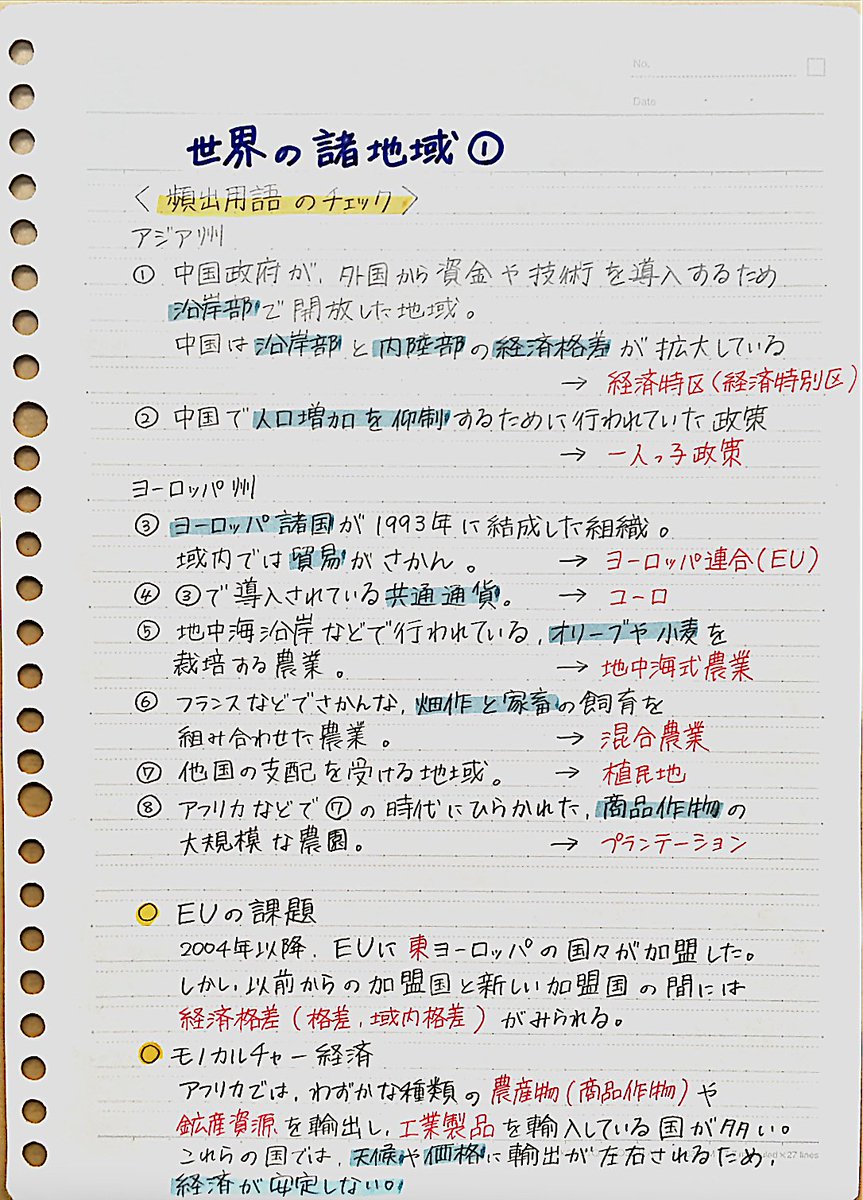 No.
Date
世界の諸地域①
〈頻出用語のチェック〉
アジア州
① 中国政府が、外国から資金や技術を導入するため
沿岸部で開放した地域。
中国は沿岸部と内陸部の経済格差が拡大している
→ 経済特区(経済特別区)
② 中国で人口増加を仰制するために行われていた政策
→ 一人っ子政策
ヨーロッパ州
③ ヨーロッパ諸国が1993年に結成した組織。
域内では貿易がさかん。 → ヨーロッパ連合(EU)
④ ③で導入されている共通通貨。 → ユーロ
⑤ 地中海沿岸などで行われている、オリーブや小麦を
栽培する農業。 → 地中海式農業
⑥ フランスなどでさかんな、畑作と家畜の飼育を
組み合わせた農業。 → 混合農業
⑦ 他国の支配を受ける地域。 → 植民地
⑧ アフリカなどで⑦の時代にひらかれた、商品作物の
大規模な農園。 → プランテーション
EUの課題
2004年以降、EUに東ヨーロッパの国々が加盟した。
しかし、以前からの加盟国と新しい加盟国の間には
経済格差(格差、域内格差)がみられる。
モノカルチャー経済
アフリカでは、わずかな種類の農産物(商品作物)や
鉱産資源を輸出し、工業製品を輸入している国が多い。
これらの国では、天候や価格に輸出が左右されるため、
経済が安定しない。